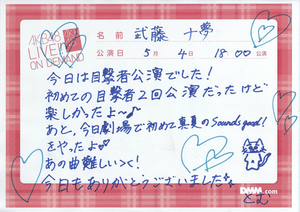 AKB48
LIVE!!
ON DEMAND
名前 武藤 十夢
公演日 5月 4日 18:00 公演
今日は目撃者公演でした!
初めての目撃者2回公演だったけど
楽しかったよ〜♪
あと、今日劇場で初めて真夏のSounds good!
をやったよ
あの曲難しいっ
今日もありがとうございました
とむ
DMM.com